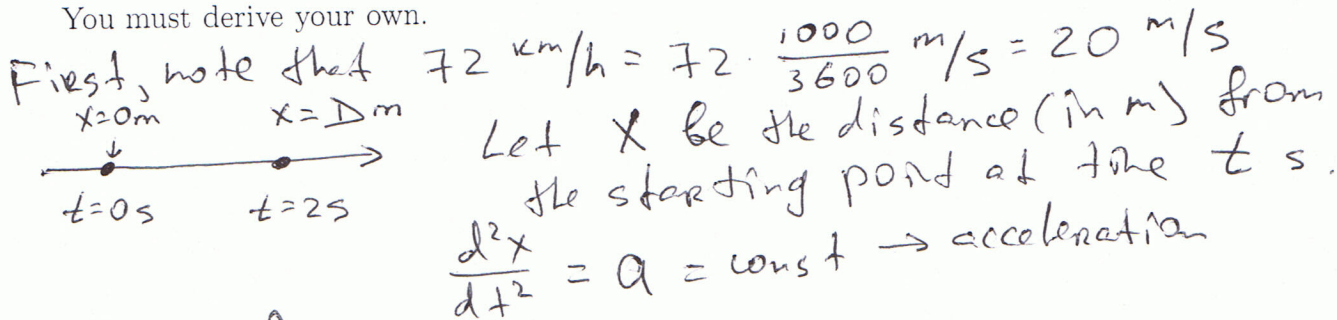 You must derive your own.
First, note that 72 km/h = 72 · 1000/3600 m/s = 20 m/s
x=0m x=Dm
t=0s t=2s
Let x be the distance (in m) from
the starting point at time t s.
d²x/dt² = a = const → acceleration